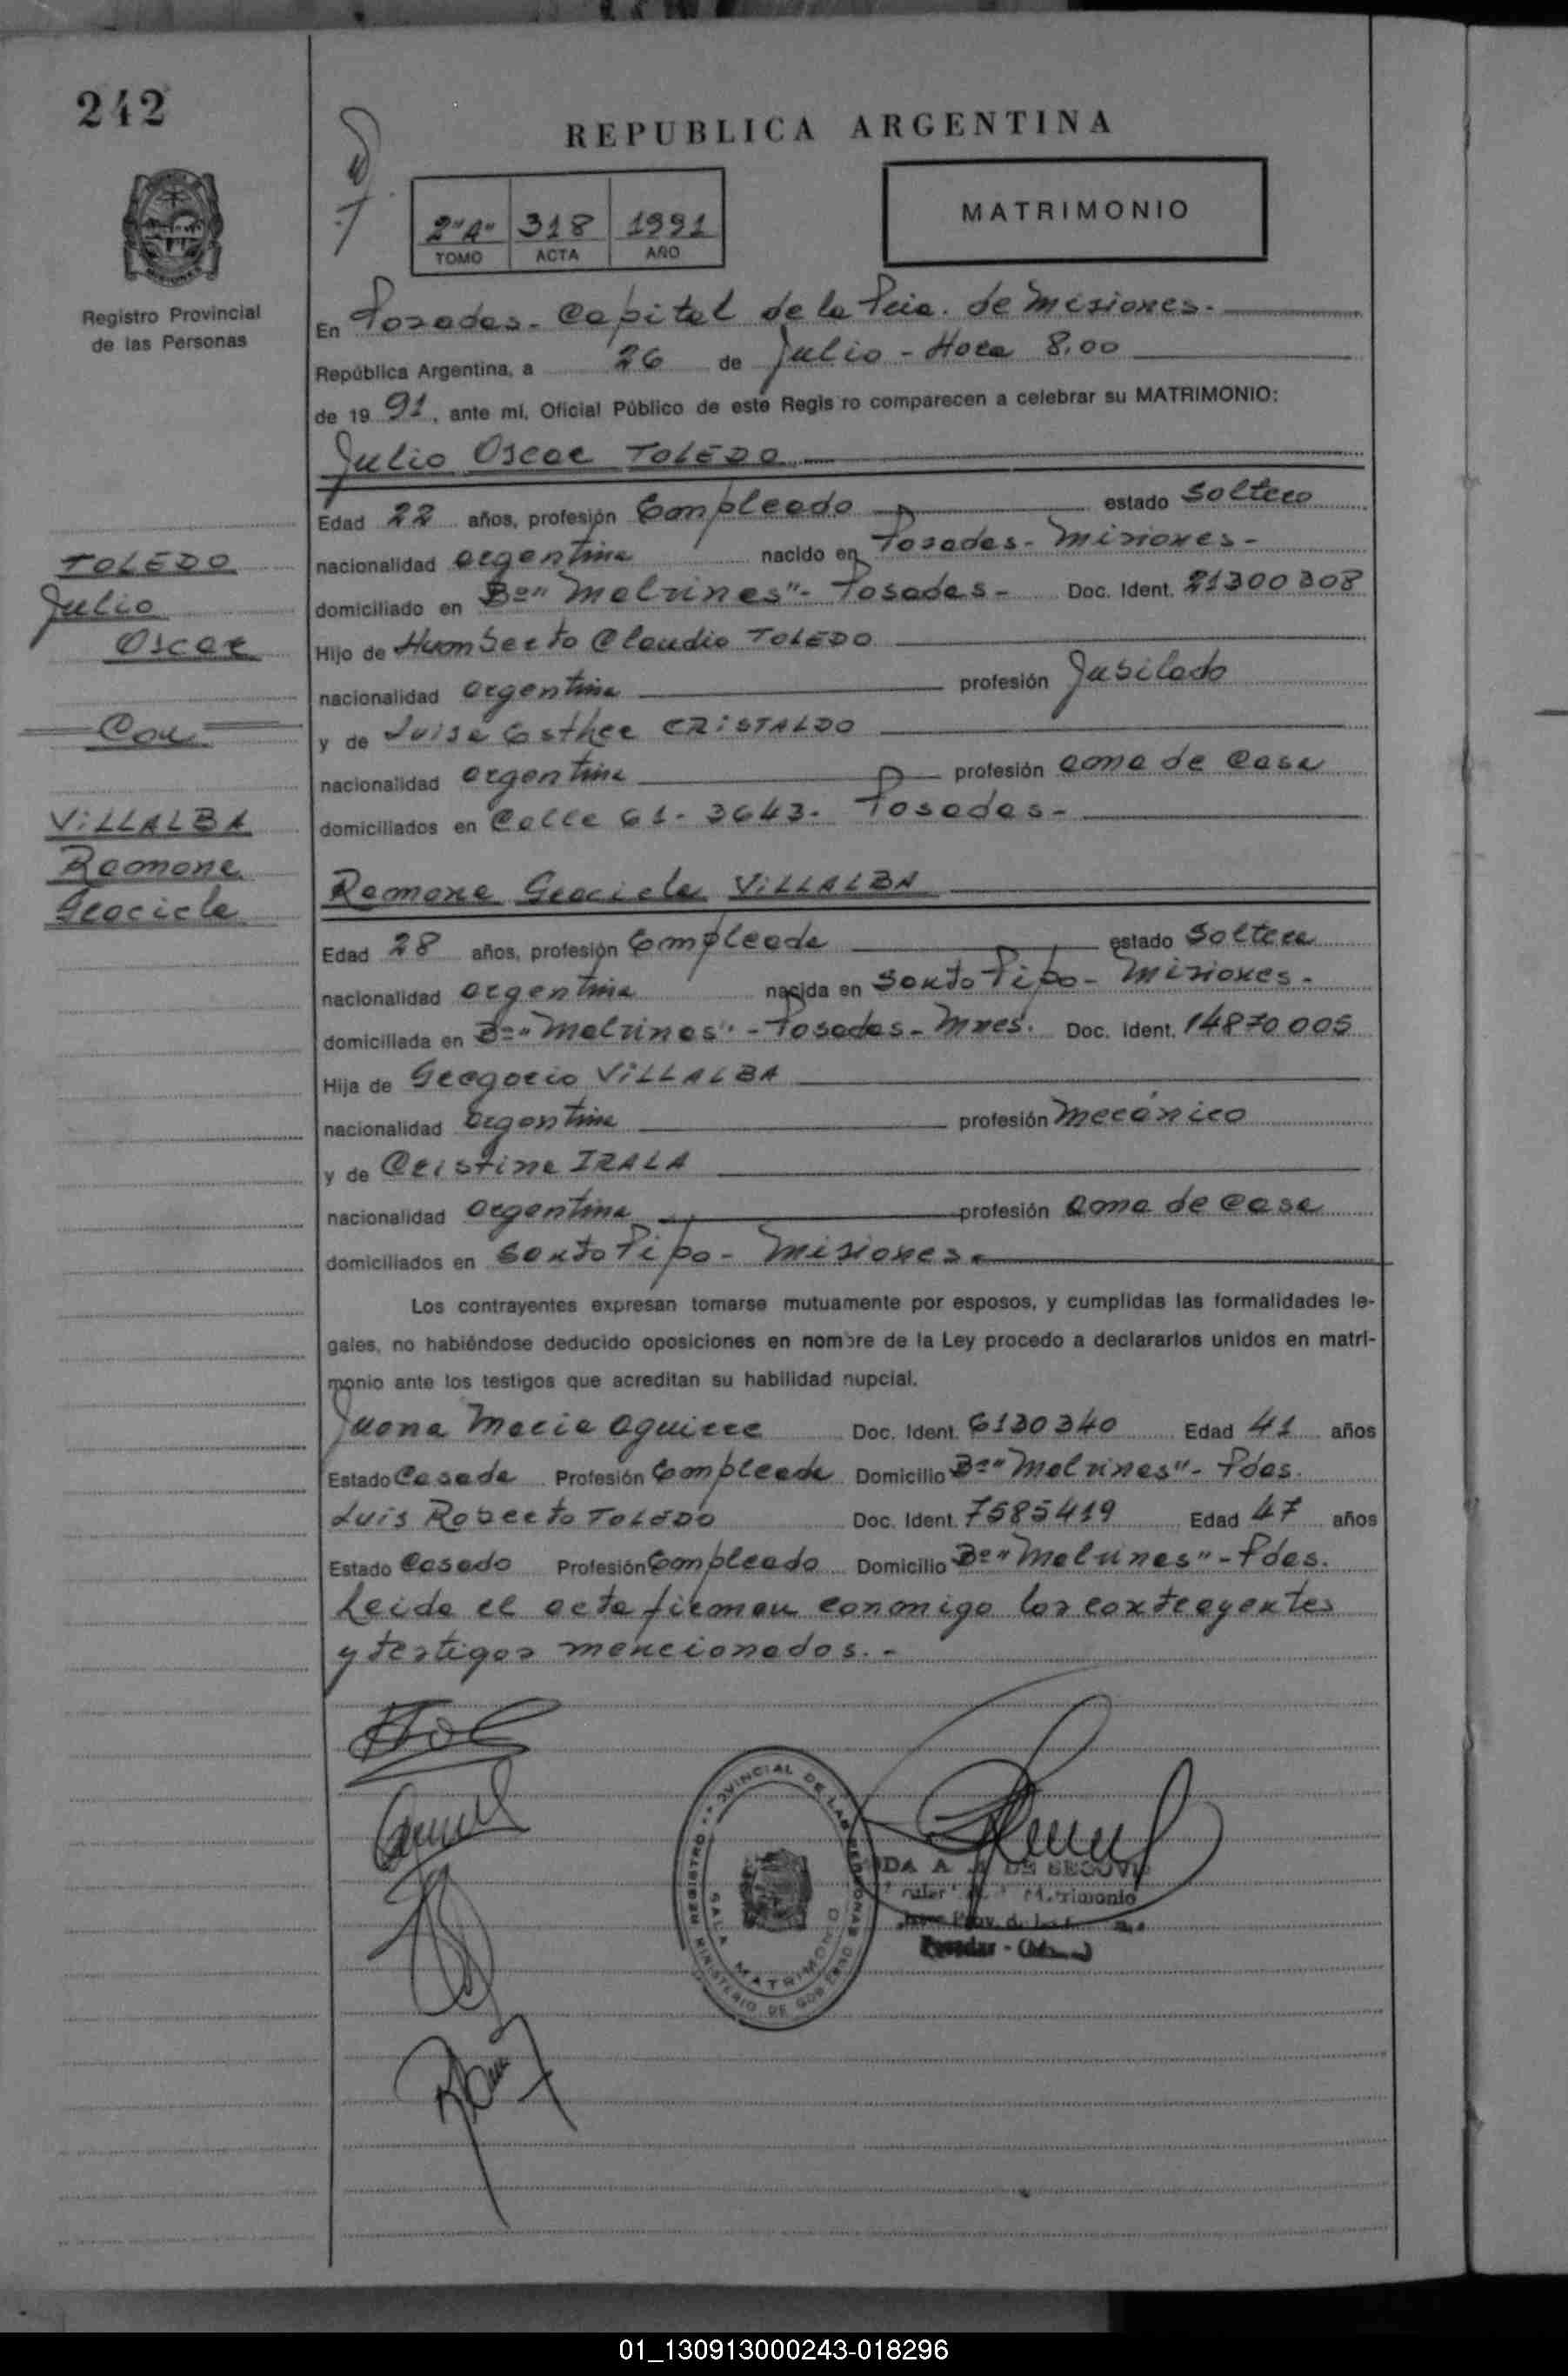 242
REPUBLICA ARGENTINA
MATRIMONIO
2"A" 318 1991
TOMO ACTA AÑO
Registro Provincial
de las Personas
En Posadas - Capital de la Pcia. de Misiones.
República Argentina, a 26 de Julio - Hora 8,00
de 19 91, ante mí, Oficial Público de este Regis ro comparecen a celebrar su MATRIMONIO:
Julio Oscar TOLEDO
Edad 22 años, profesión Empleado estado Soltero
nacionalidad argentina nacido en Posadas - Misiones -
domiciliado en Bº "Malvinas" - Posadas - Doc. Ident. 21300308
Hijo de Humberto Claudio TOLEDO
nacionalidad argentina profesión Jubilado
y de Luisa Esther CRISTALDO
nacionalidad argentina profesión ama de casa
domiciliados en Calle 61 - 3643 - Posadas -
TOLEDO
Julio
Oscar
Con
VILLALBA
Ramona
Graciela
Ramona Graciela VILLALBA
Edad 28 años, profesión Empleada estado Soltera
nacionalidad argentina nacida en Santo Pipo - Misiones.
domiciliada en Bº "Malvinas" - Posadas - Mnes. Doc. Ident. 14870005
Hija de Gregorio VILLALBA
nacionalidad argentina profesión mecánico
y de Cristina IRALA
nacionalidad argentina profesión ama de casa
domiciliados en Santo Pipo - Misiones.
Los contrayentes expresan tomarse mutuamente por esposos, y cumplidas las formalidades le-
gales, no habiéndose deducido oposiciones en nombre de la Ley procedo a declararlos unidos en matri-
monio ante los testigos que acreditan su habilidad nupcial.
Juana Maria Aguirre Doc. Ident. 6130340 Edad 41 años
Estado Casada Profesión Empleada Domicilio Bº "Malvinas" - Pdas.
Luis Roberto TOLEDO Doc. Ident. 7585419 Edad 47 años
Estado Casado Profesión Empleado Domicilio Bº "Malvinas" - Pdas.
Leida el acta firman conmigo los contrayentes
y testigos mencionados. -
REGISTRO PROVINCIAL DE LAS PERSONAS
MINISTERIO DE GOBIERNO
SALA MATRIMONIO
DE SEGOVIA
Matrimonio
Posadas - (Mnes.)
01_130913000243-018296